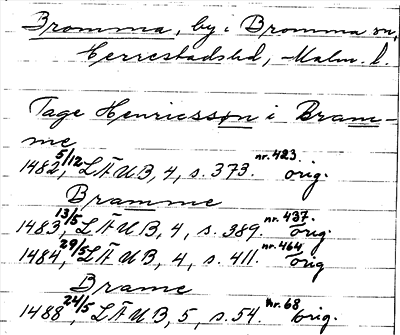 Bromma, by i Bromma sn,
Herrestads hd, Malm. l.
Tage Henricsson i Bram-
me
1482 5/12, LÄUB, 4, s. 373. nr. 423. orig.
Bramme
1483 13/5, LÄUB, 4, s. 389. nr. 437. orig
1484 29/5, LÄUB, 4, s. 411. nr. 464 orig
Brame
1488 24/5, LÄUB, 5, s. 54. nr. 68 orig.